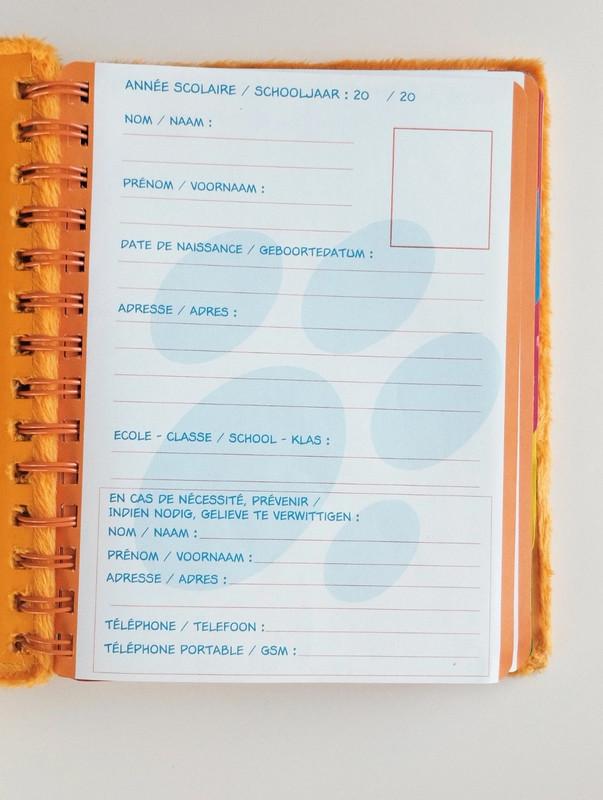 ANNÉE SCOLAIRE / SCHOOLJAAR : 20 / 20
NOM / NAAM :
PRÉNOM / VOORNAAM :
DATE DE NAISSANCE / GEBOORTEDATUM :
ADRESSE / ADRES :
ECOLE - CLASSE / SCHOOL - KLAS :
EN CAS DE NÉCESSITÉ, PRÉVENIR /
INDIEN NODIG, GELIEVE TE VERWITTIGEN :
NOM / NAAM :
PRÉNOM / VOORNAAM :
ADRESSE / ADRES :
TÉLÉPHONE / TELEFOON :
TÉLÉPHONE PORTABLE / GSM :